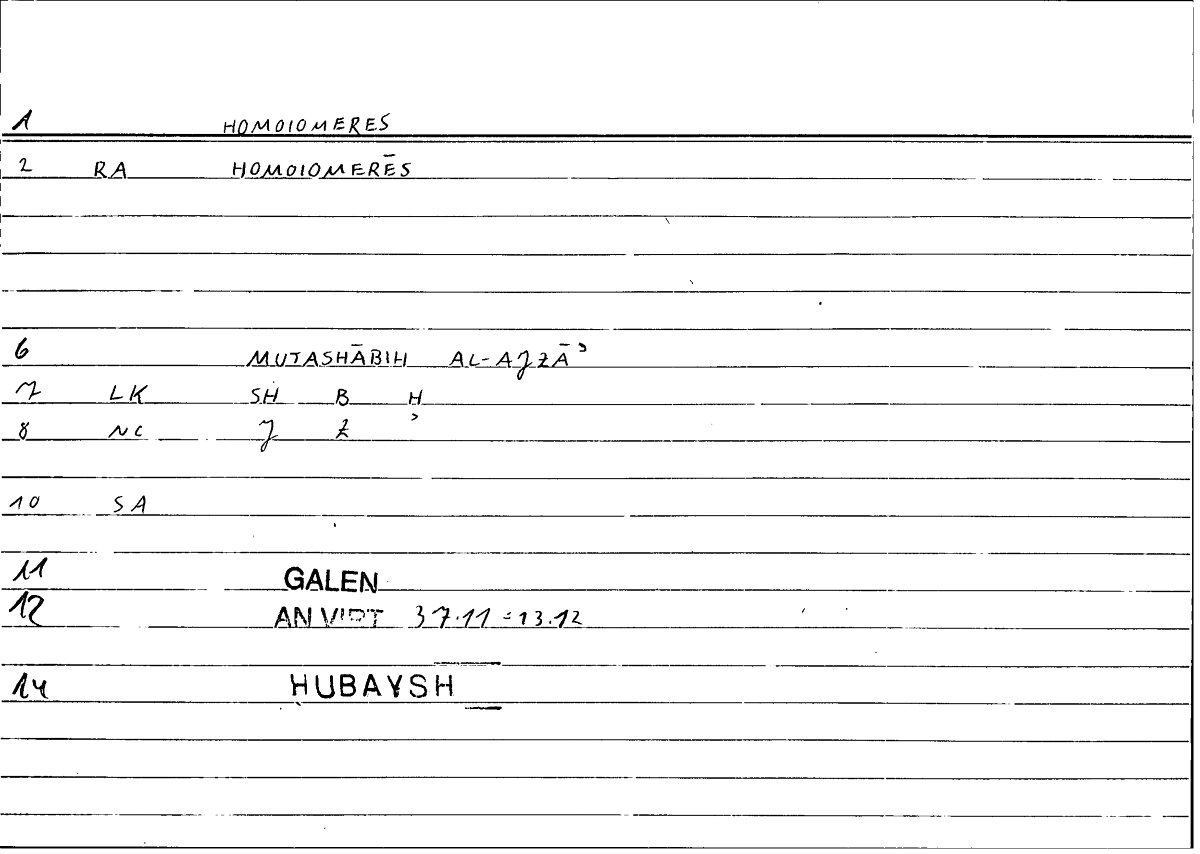 1 HOMOIOMERES
2 RA HOMOIOMERĒS
6 MUTASHĀBIH AL-AJZĀʾ
7 LK SH B H
8 NC J Z ʾ
10 SA
11 GALEN
12 AN VIRT 37.11 = 13.12
14 HUBAYSH